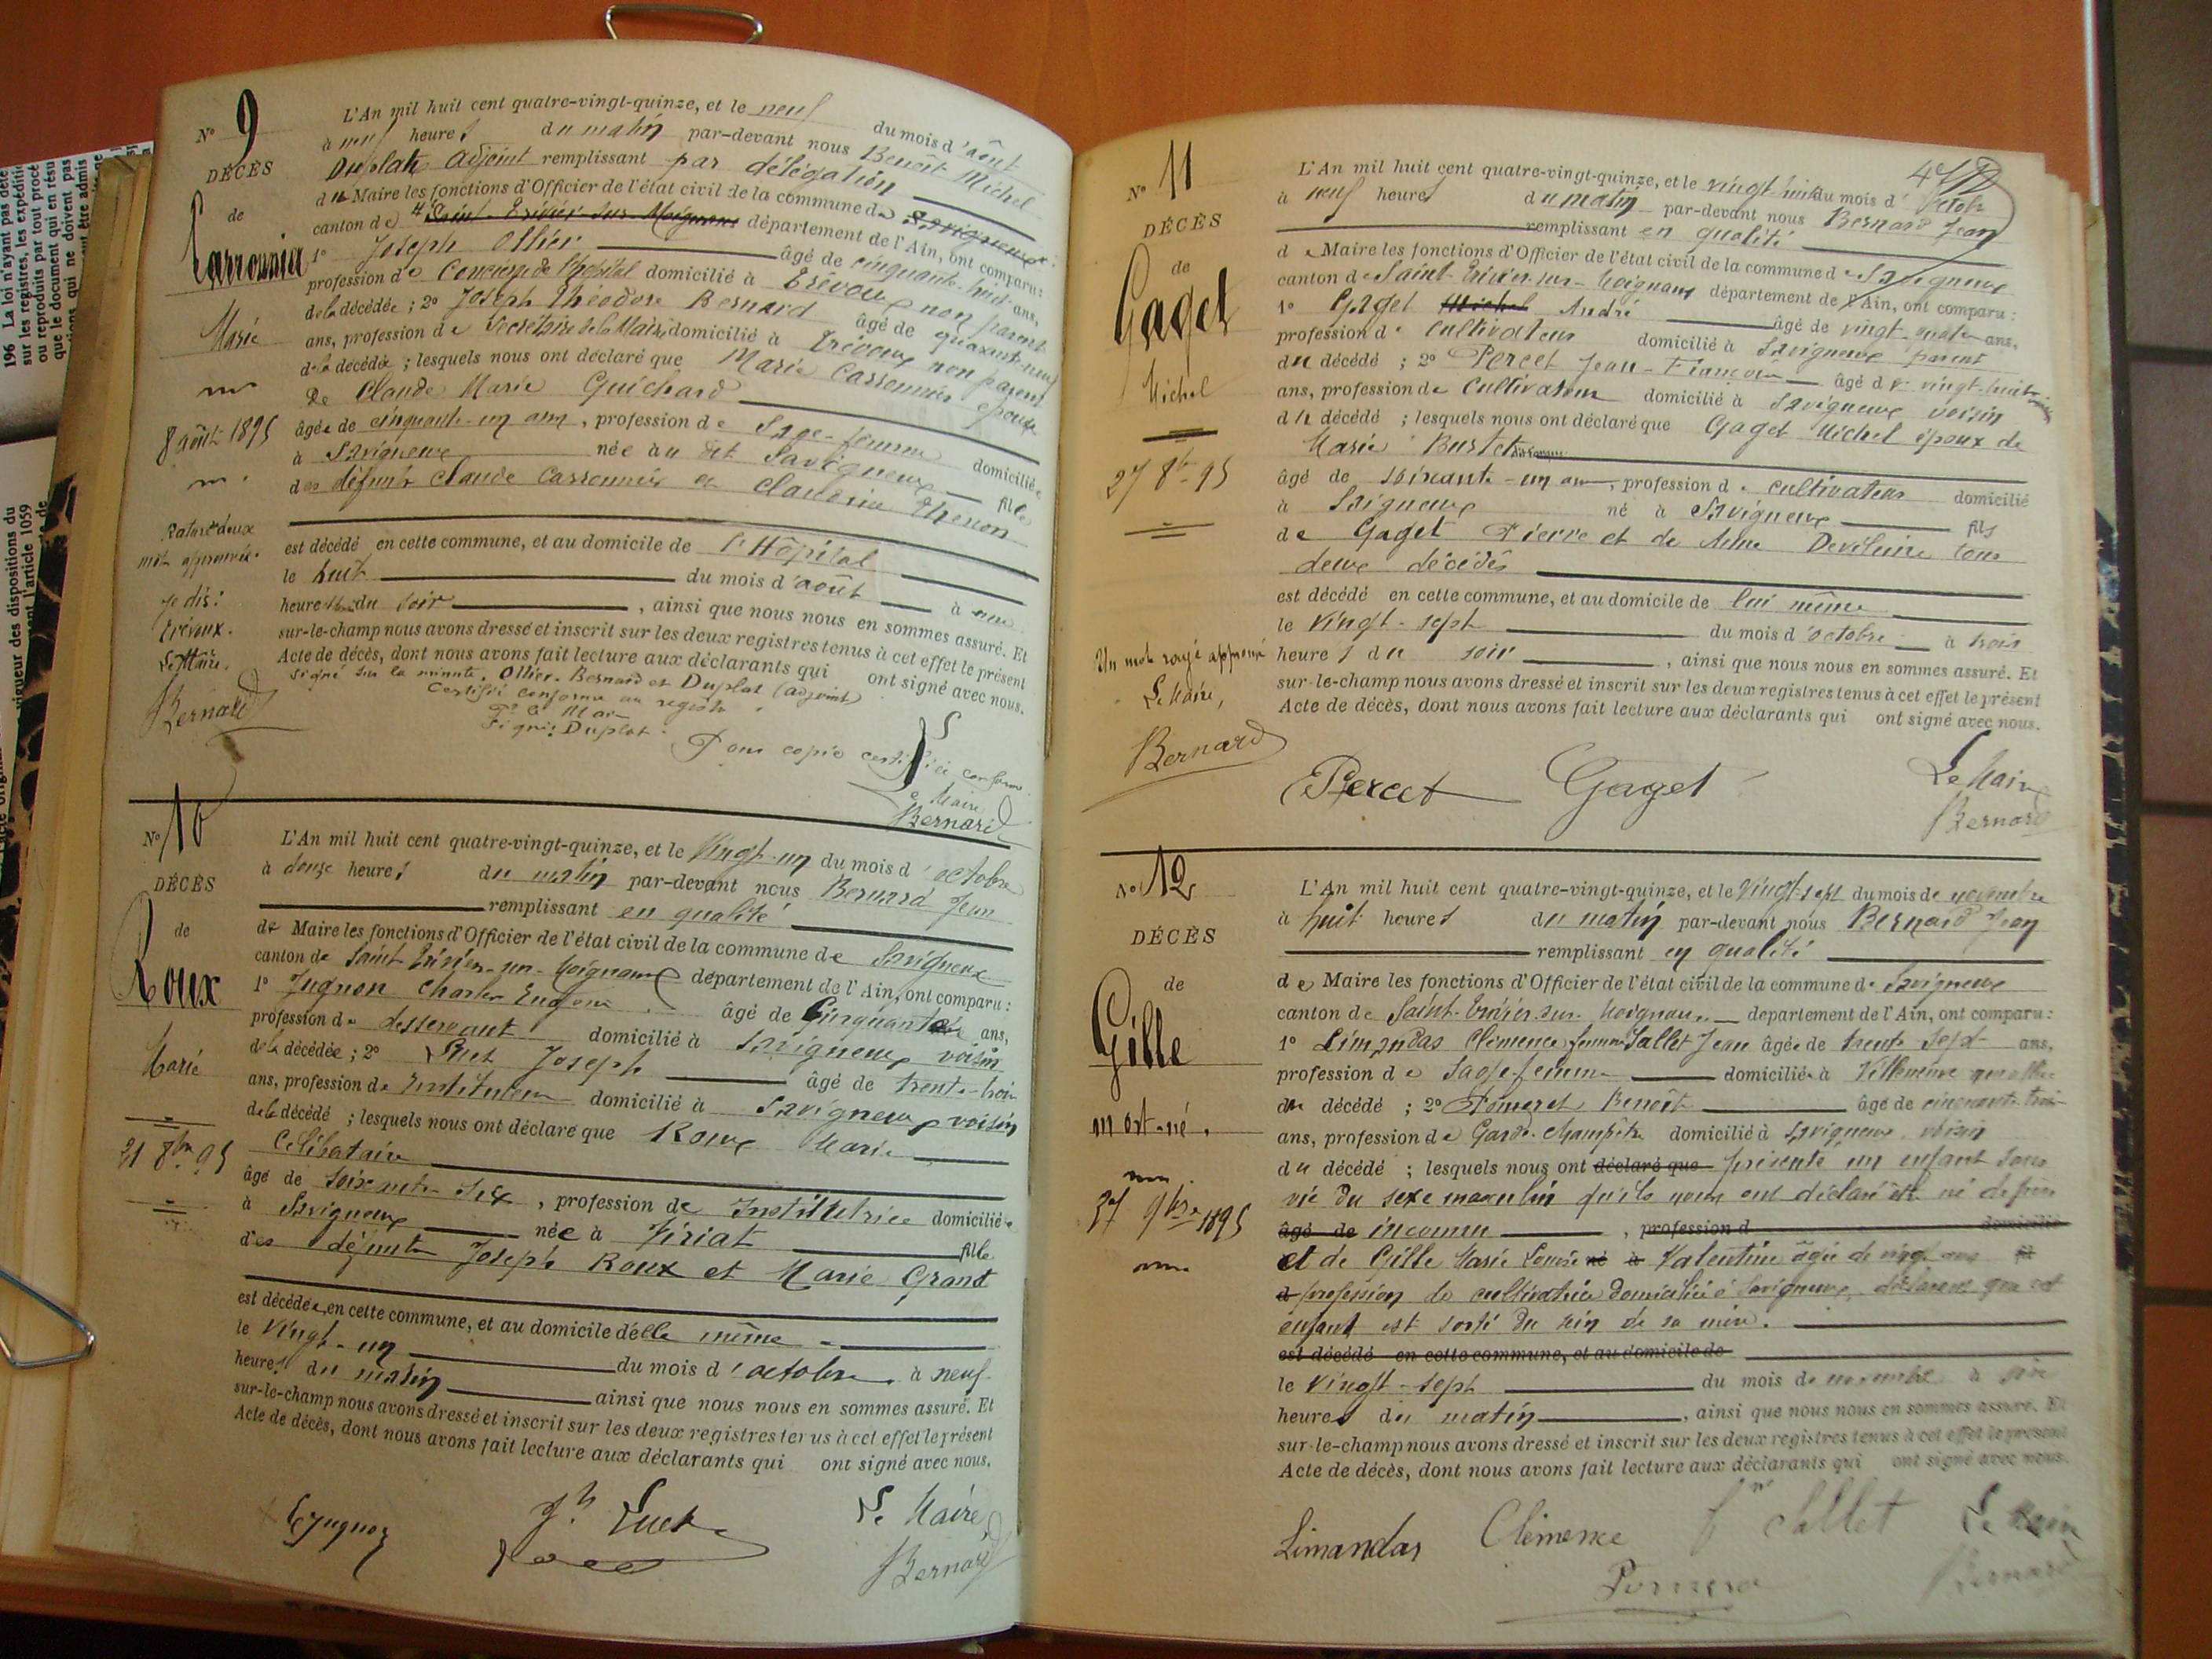 N° 9
DÉCÈS
de
Carronnier
Marie
8 août 1895
Rature deux
mots approuvée.
Je dis:
Trévoux.
Le Maire,
Bernard
L'An mil huit cent quatre-vingt-quinze, et le neuf du mois d'août
à neuf heures du matin par-devant nous Benoît Michel
Duplat adjoint remplissant par délégation
du Maire les fonctions d'Officier de l'état civil de la commune de Savigneux
canton de Saint-Trivier-sur-Moignans département de l'Ain, ont comparu:
1° Joseph Ollier âgé de cinquante-huit ans,
profession de Concierge de l'hôpital domicilié à Trévoux non parent
de la décédée; 2° Joseph Théodore Bernard âgé de quarante-neuf
ans, profession de Secrétaire de la Mairie domicilié à Trévoux non parent
de la décédée; lesquels nous ont déclaré que Marie Carronnier épouse
de Claude Marie Guichard
âgée de cinquante-un ans, profession de Sage-femme domiciliée
à Savigneux née au dit Savigneux fille
des défunts Claude Carronnier et Claudine Thenon
est décédé en cette commune, et au domicile de l'Hôpital
le huit du mois d'août à une
heure du soir, ainsi que nous nous en sommes assuré. Et
sur-le-champ nous avons dressé et inscrit sur les deux registres tenus à cet effet le présent
Acte de décès, dont nous avons fait lecture aux déclarants qui ont signé avec nous.
Signé sur la minute. Ollier. Bernard et Duplat (adjoint)
Certifié conforme au registre
Pr le Maire
Signé: Duplat.
Pour copie certifiée conforme
Le Maire
Bernard
N° 10
DÉCÈS
de
Roux
Marie
21 8bre 95
L'An mil huit cent quatre-vingt-quinze, et le vingt-un du mois d'octobre
à douze heures du matin par-devant nous Bernard Jean
remplissant en qualité
de Maire les fonctions d'Officier de l'état civil de la commune de Savigneux
canton de Saint-Trivier-sur-Moignans département de l'Ain, ont comparu:
1° Jugnon Charles Eugène âgé de Cinquante ans,
profession de desservant domicilié à Savigneux voisin
de la décédée; 2° Luet Joseph âgé de trente-trois
ans, profession de Instituteur domicilié à Savigneux voisin
de la décédé; lesquels nous ont déclaré que Roux Marie
Célibataire
âgé de soixante-six, profession de Institutrice domiciliée
à Savigneux née à Viriat fille
des défunts Joseph Roux et Marie Grand
est décédée en cette commune, et au domicile d'elle même
le vingt-un du mois d'octobre à neuf
heures du matin ainsi que nous nous en sommes assuré. Et
sur-le-champ nous avons dressé et inscrit sur les deux registres tenus à cet effet le présent
Acte de décès, dont nous avons fait lecture aux déclarants qui ont signé avec nous.
Jugnon Jh Luet Le Maire
Bernard
N° 11
DÉCÈS
de
Gaget
Michel
27 8bre 95
Un mot rayé approuvé
Le Maire,
Bernard
L'An mil huit cent quatre-vingt-quinze, et le vingt huit du mois d'octob
à neuf heures du matin par-devant nous Bernard Jean
remplissant en qualité
de Maire les fonctions d'Officier de l'état civil de la commune de Savigneux
canton de Saint-Trivier-sur-Moignans département de l'Ain, ont comparu:
1° Gaget Michel André âgé de vingt-quatre ans,
profession de cultivateur domicilié à Savigneux parent
du décédé; 2° Percet Jean-François âgé de vingt-huit
ans, profession de Cultivateur domicilié à Savigneux voisin
du décédé; lesquels nous ont déclaré que Gaget Michel époux de
Marie Burtet
âgé de soixante-un an, profession de cultivateur domicilié
à Savigneux né à Savigneux fils
de Gaget Pierre et de Anne Devéleine tous
deux décédés
est décédé en cette commune, et au domicile de lui même
le vingt-sept du mois d'octobre à trois
heures du soir, ainsi que nous nous en sommes assuré. Et
sur-le-champ nous avons dressé et inscrit sur les deux registres tenus à cet effet le présent
Acte de décès, dont nous avons fait lecture aux déclarants qui ont signé avec nous.
Percet Gaget Le Maire
Bernard
N° 12
DÉCÈS
de
Gille
mort-né.
27 9bre 1895
L'An mil huit cent quatre-vingt-quinze, et le vingt-sept du mois de novembre
à huit heures du matin par-devant nous Bernard Jean
remplissant en qualité
de Maire les fonctions d'Officier de l'état civil de la commune de Savigneux
canton de Saint-Trivier-sur-Moignans département de l'Ain, ont comparu:
1° Limandas Clémence femme Sallet Jean âgée de trente sept ans,
profession de Sage femme domiciliée à Villeneuve
du décédé; 2° Pomeret Benoît âgé de cinquante-trois
ans, profession de Garde-champêtre domicilié à Savigneux voisin
du décédé; lesquels nous ont déclaré que présenté un enfant sans
vie du sexe masculin qu'ils nous ont déclaré être né de père
âgé de inconnu, profession d domicilié
et de Gille Marie Louise né à Valentine âgée de vingt ans
profession de cultivatrice domiciliée à Savigneux, déclarent que cet
enfant est sorti du sein de sa mère.
est décédé en cette commune, et au domicile de
le vingt-sept du mois de novembre à six
heures du matin, ainsi que nous nous en sommes assuré. Et
sur-le-champ nous avons dressé et inscrit sur les deux registres tenus à cet effet le présent
Acte de décès, dont nous avons fait lecture aux déclarants qui ont signé avec nous.
Limandas Clémence fe Sallet Le Maire
Pomeret Bernard